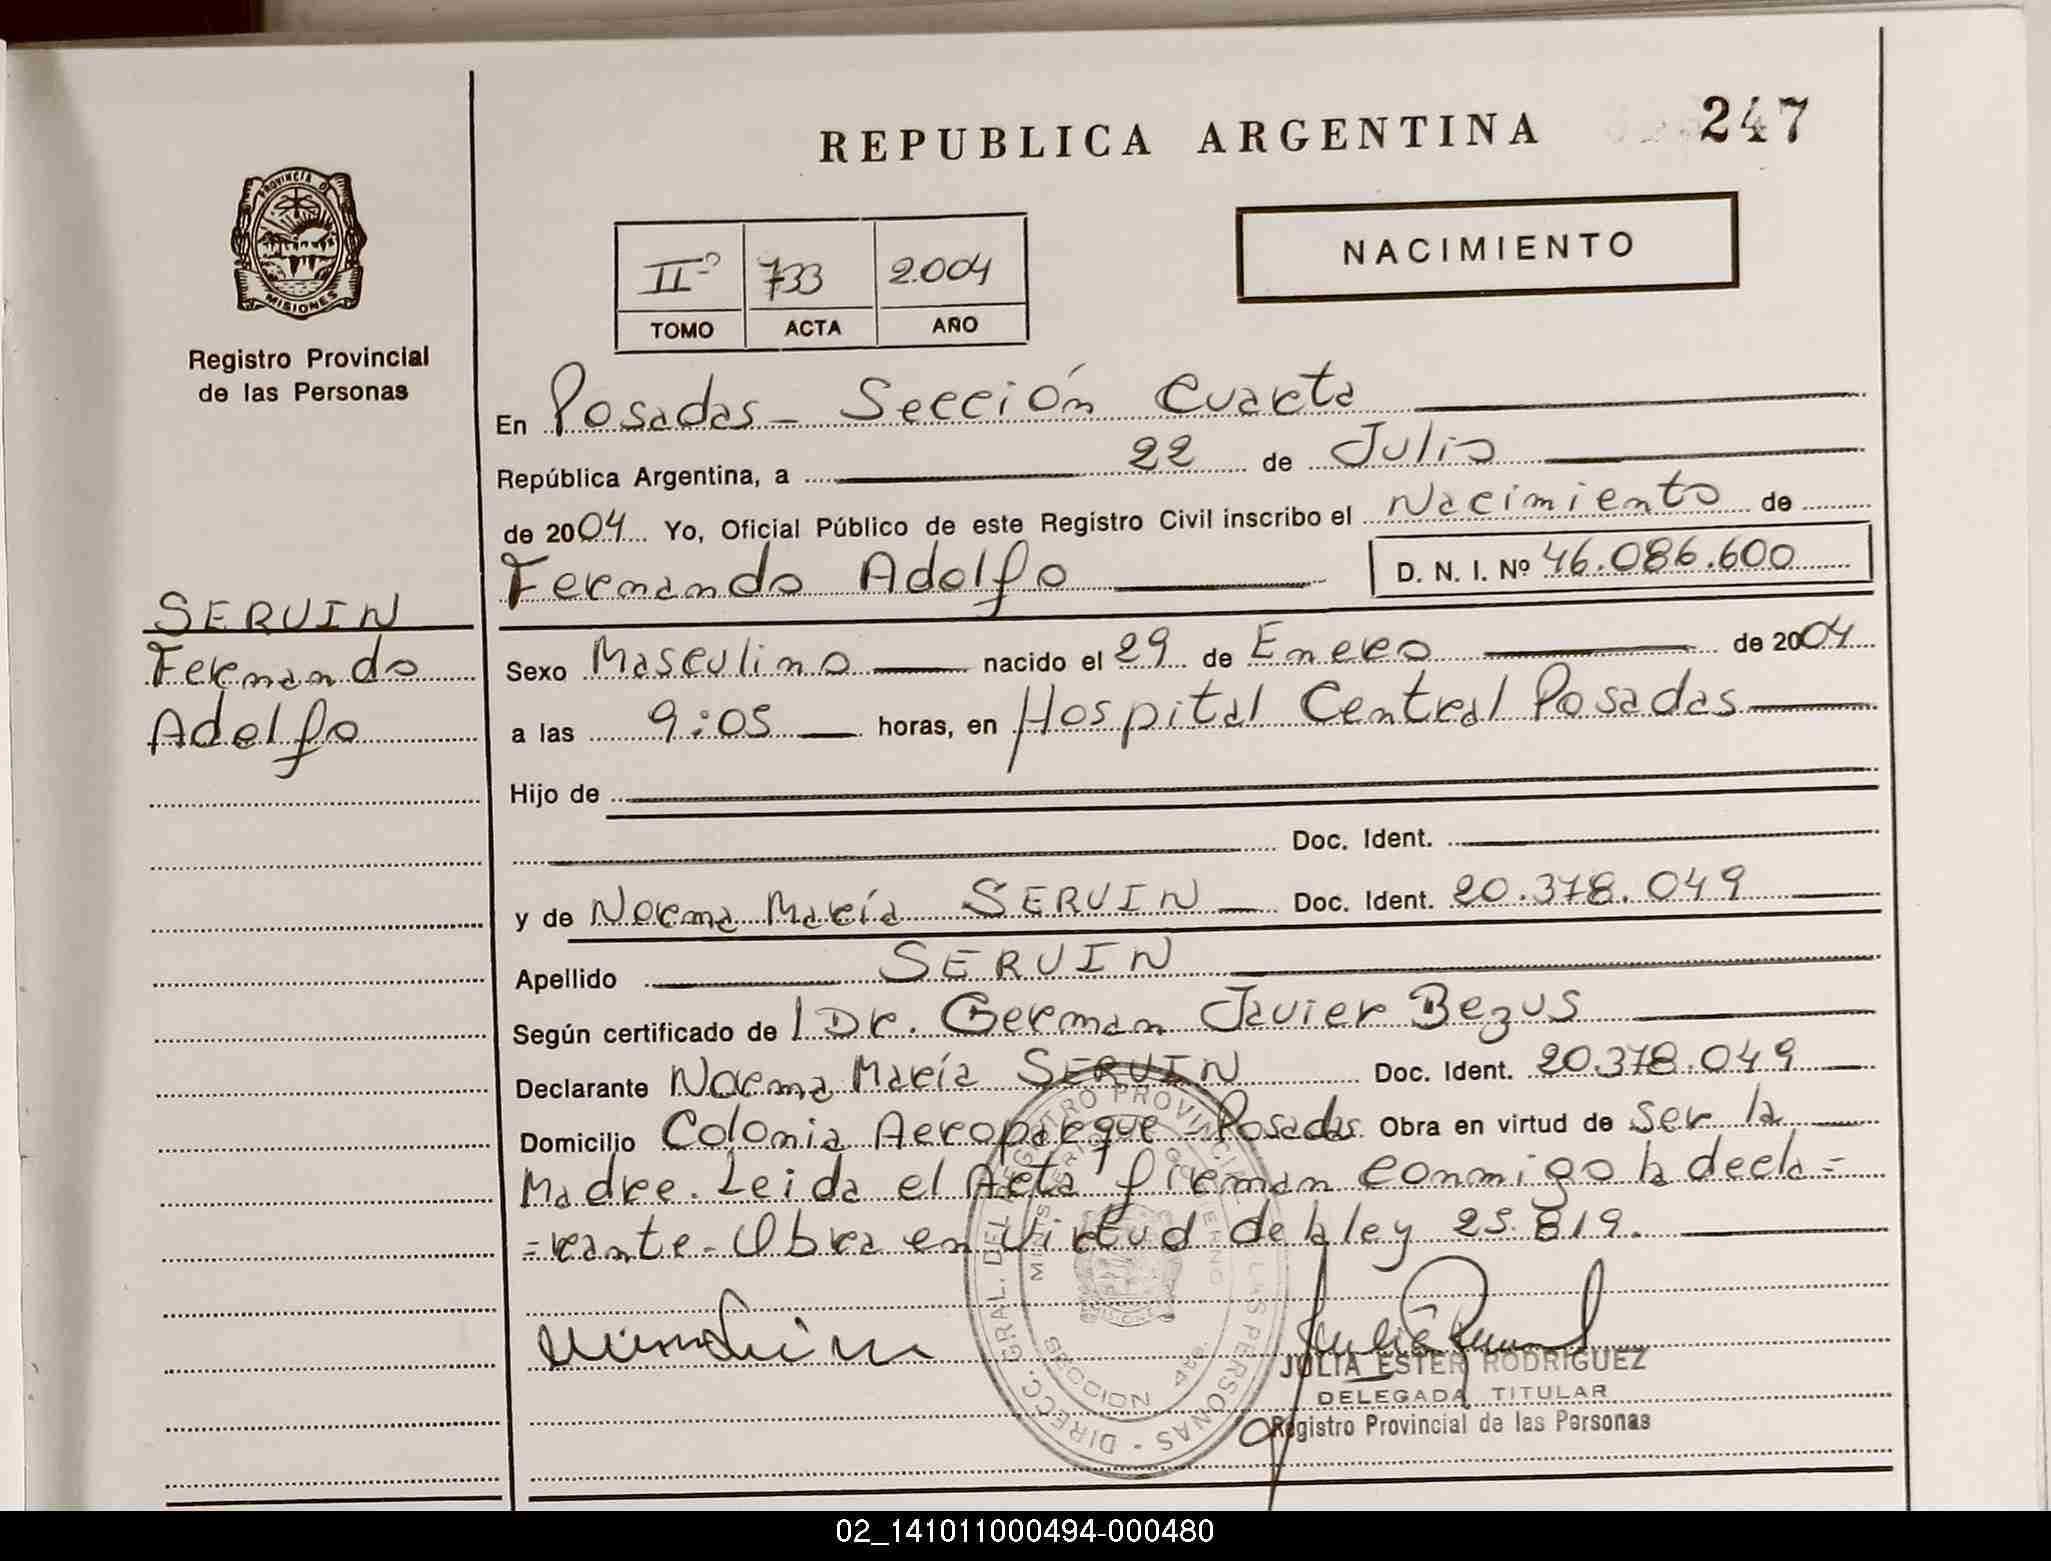 REPUBLICA ARGENTINA
247
PROVINCIA D
MISIONES
Registro Provincial
de las Personas
IIº 733 2.004
TOMO ACTA AÑO
NACIMIENTO
En Posadas - Sección Cuarta
República Argentina, a 22 de Julio
de 2004 Yo, Oficial Público de este Registro Civil inscribo el Nacimiento de
Fernando Adolfo D. N. I. Nº 46.086.600
SERVIN
Fernando
Adolfo
Sexo Masculino nacido el 29 de Enero de 2004
a las 9:05 horas, en Hospital Central Posadas
Hijo de
Doc. Ident.
y de Norma María SERVIN Doc. Ident. 20.378.049
Apellido SERVIN
Según certificado de l Dr. German Javier Bezus
Declarante Norma María SERVIN Doc. Ident. 20.378.049
Domicilio Colonia Aeroparque - Posadas Obra en virtud de ser la
Madre. Leida el Acta firman conmigo la decla=
=rante. Obra en virtud de la ley 25.819.
DIRECC. GRAL. DEL REGISTRO PROVINCIAL LAS PERSONAS
JULIA ESTER RODRIGUEZ
DELEGADA TITULAR
Registro Provincial de las Personas
02_141011000494-000480